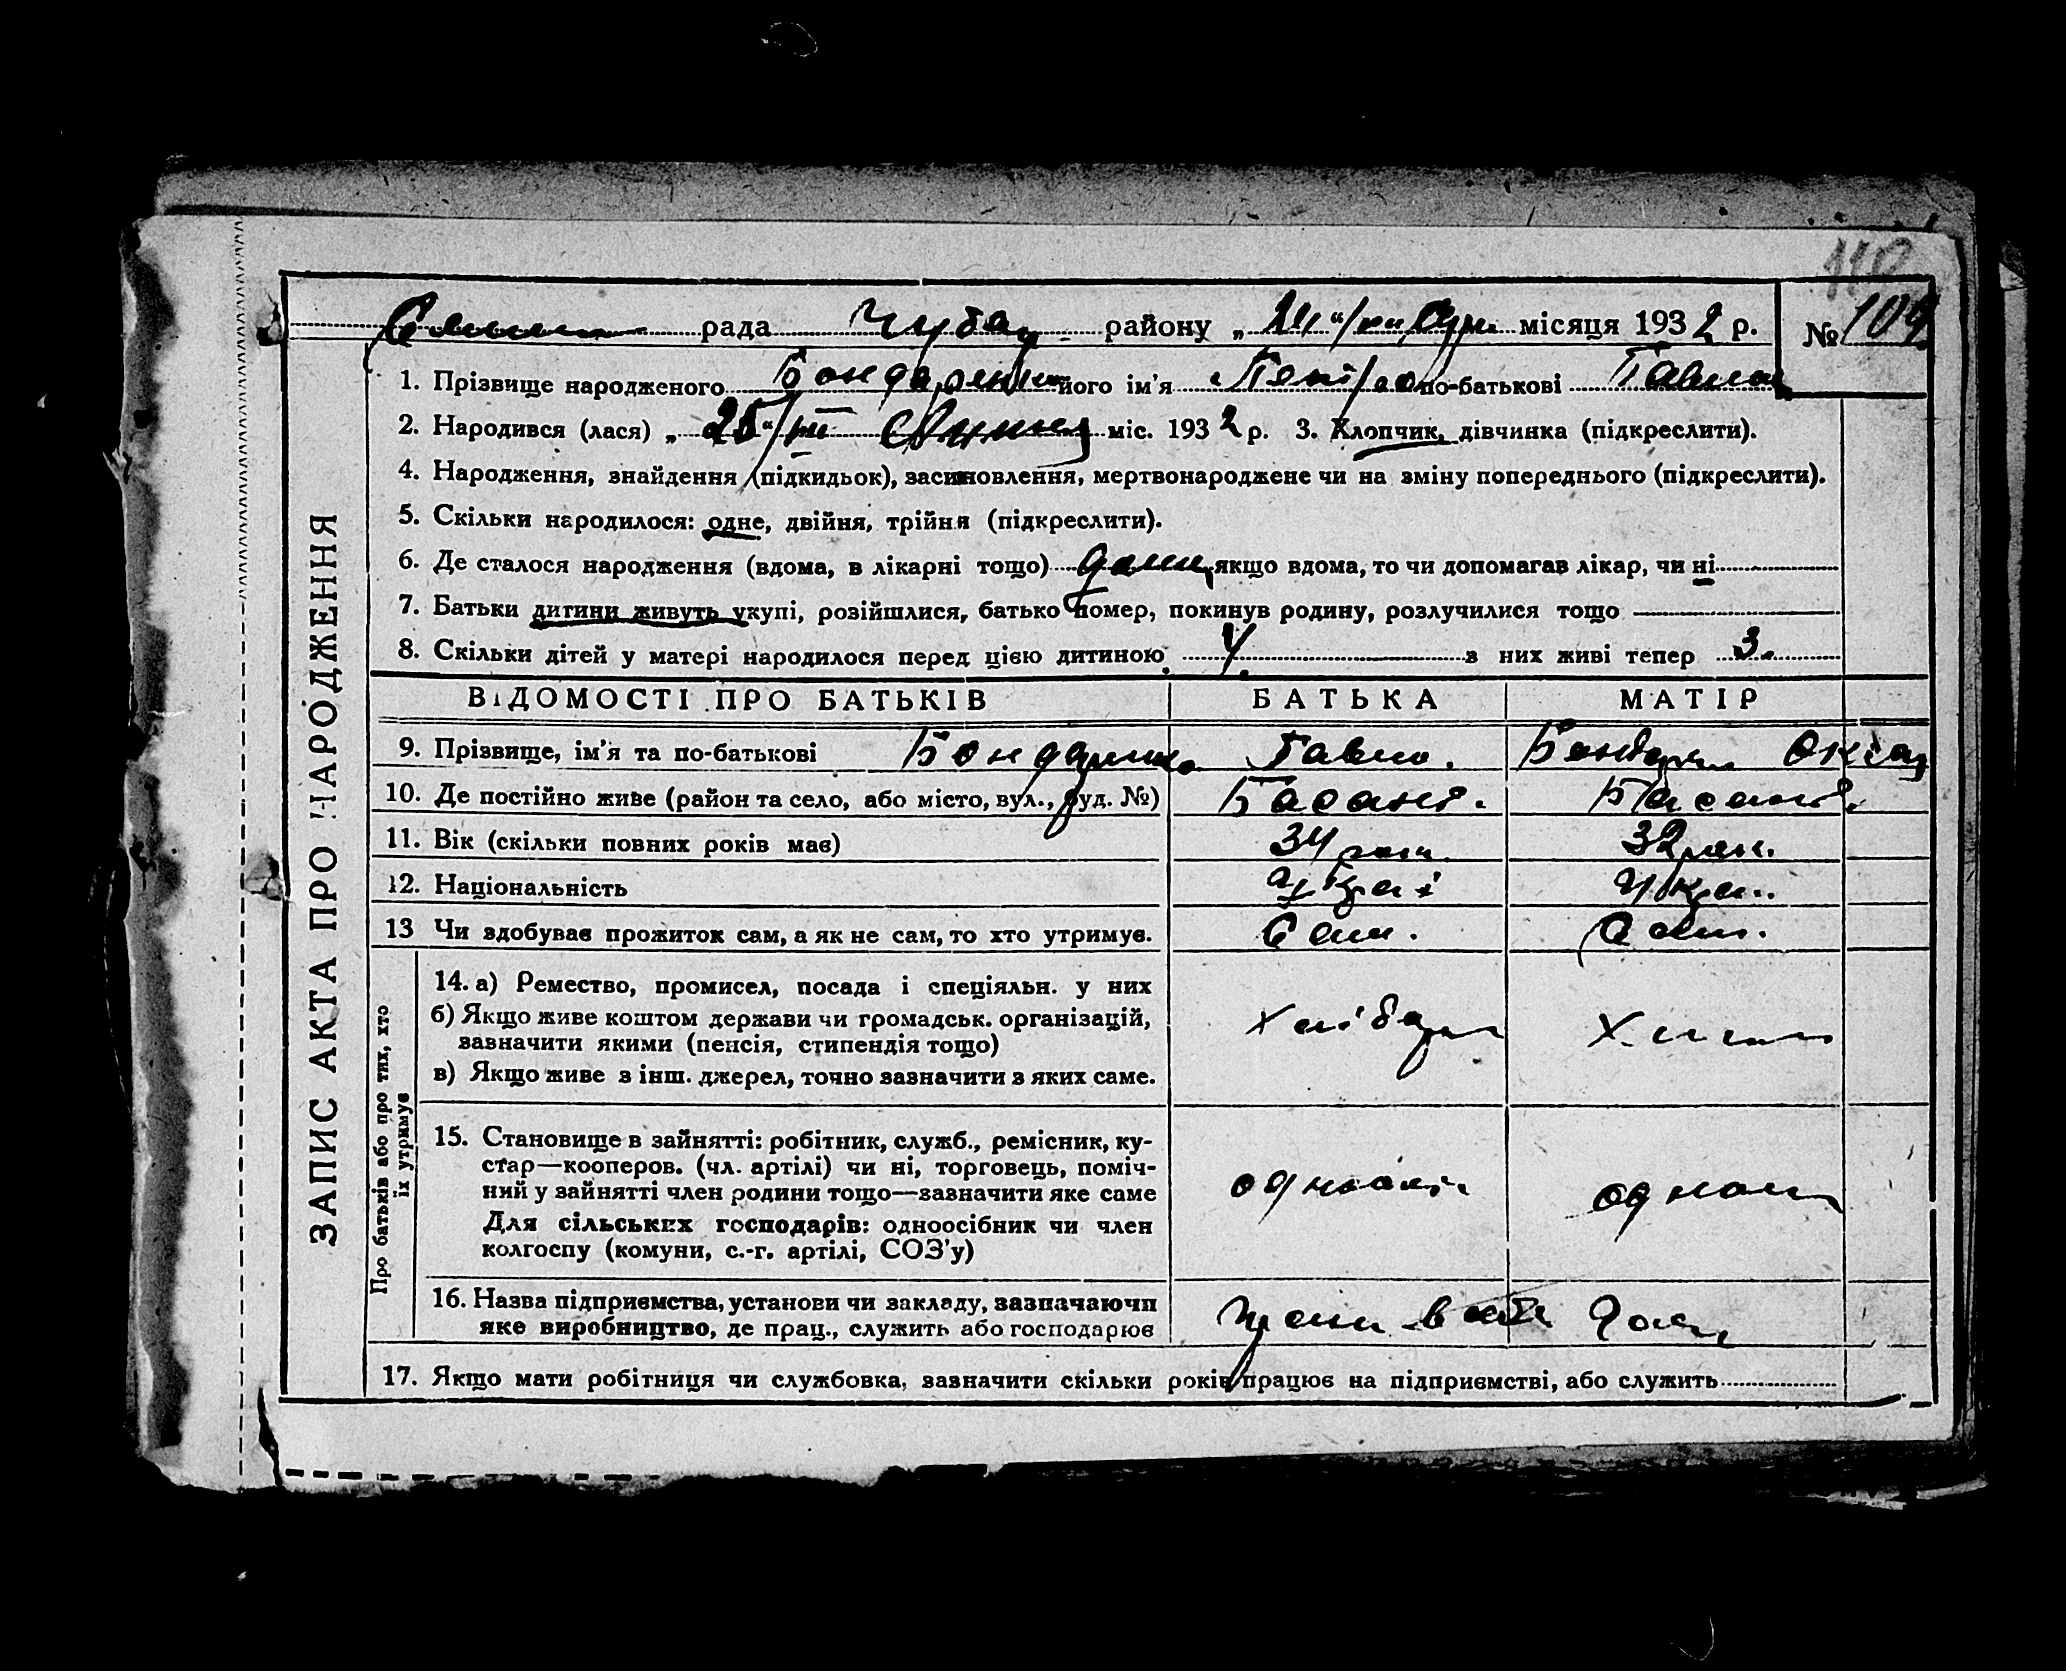 118
рада Чубар району „ 24 “ місяця 1932 р. № 109
1. Прізвище народженого Бондаренко його ім'я Петро по-батькові Павло
2. Народився (лася) „ 25 “ /VII міс. 1932 р. 3. Хлопчик, дівчинка (підкреслити).
4. Народження, знайдення (підкидьок), засиновлення, мертвонароджене чи на зміну попереднього (підкреслити).
5. Скільки народилося: одне, двійня, трійня (підкреслити).
6. Де сталося народження (вдома, в лікарні тощо) дома, якщо вдома, то чи допомагав лікар, чи ні
7. Батьки дитини живуть укупі, розійшлися, батько помер, покинув родину, розлучилися тощо
8. Скільки дітей у матері народилося перед цією дитиною 4. з них живі тепер 3.
ВІДОМОСТІ ПРО БАТЬКІВ БАТЬКА МАТІР
9. Прізвище, ім'я та по-батькові Бондаренко Павло. Бондарен Оксан
10. Де постійно живе (район та село, або місто, вул., буд. №) Басань. Басань.
11. Вік (скільки повних років має) 34 рок. 32 рок.
12. Національність украі укра.
13 Чи здобуває прожиток сам, а як не сам, то хто утримує. Сам. Сам.
14. а) Ремество, промисел, посада і спеціяльн. у них
б) Якщо живе коштом держави чи громадськ. організацій, хлібор
зазначити якими (пенсія, стипендія тощо)
в) Якщо живе з інш. джерел, точно зазначити з яких саме.
15. Становище в зайнятті: робітник, служб., ремісник, ку-
стар—кооперов. (чл. артілі) чи ні, торговець, поміч-
ний у зайнятті член родини тощо—зазначити яке саме одноос. одноос
Для сільських господарів: одноосібник чи член
колгоспу (комуни, с.-г. артілі, СОЗ'у)
16. Назва підприємства, установи чи закладу, зазначаючи
яке виробництво, де прац., служить або господарює
17. Якщо мати робітниця чи службовка, зазначити скільки років працює на підприємстві, або служить
ЗАПИС АКТА ПРО НАРОДЖЕННЯ
Про батьків або про тих, хто
їх утримує